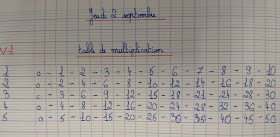 Jeudi 2 septembre
N°1 table de multiplication
1 0 - 1 - 2 - 3 - 4 - 5 - 6 - 7 - 8 - 9 - 10
2 0 - 2 - 4 - 6 - 8 - 10 - 12 - 14 - 16 - 18 - 20
3 0 - 3 - 6 - 9 - 12 - 15 - 18 - 21 - 24 - 28 - 30
4 0 - 4 - 8 - 12 - 16 - 20 - 24 - 28 - 32 - 36 - 40
5 0 - 5 - 10 - 15 - 20 - 25 - 30 - 35 - 40 - 45 - 50